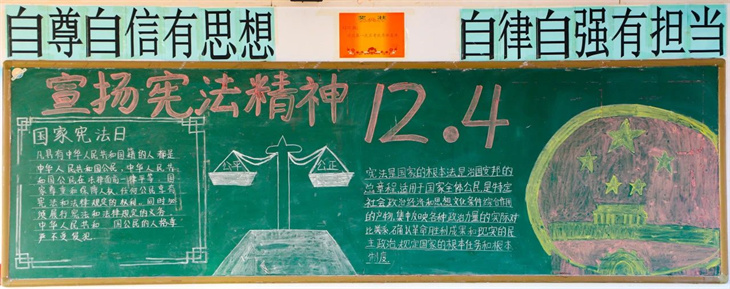 自尊自信有思想
自律自强有担当
宣扬宪法精神 12.4
国家宪法日
凡具有中华人民共和国籍的人都是
中华人民共和国公民,中华人民共
和国公民在法律面前一律平等,国
家尊重和保障人权,任何公民享有
宪法和法律规定的权利,同时必
须履行宪法和法律规定的义务,
中华人民共和 国公民的人格尊
严不受侵犯
公平
公正
宪法是国家的根本法是治国安邦的
总章程,适用于国家全体公民,是特定
社会政治经济和思想文化条件综合作用
的产物,集中反映各种政治力量的实际对
比关系,确认革命胜利成果和现实的民
主政治,规定国家的根本任务和根本
制度